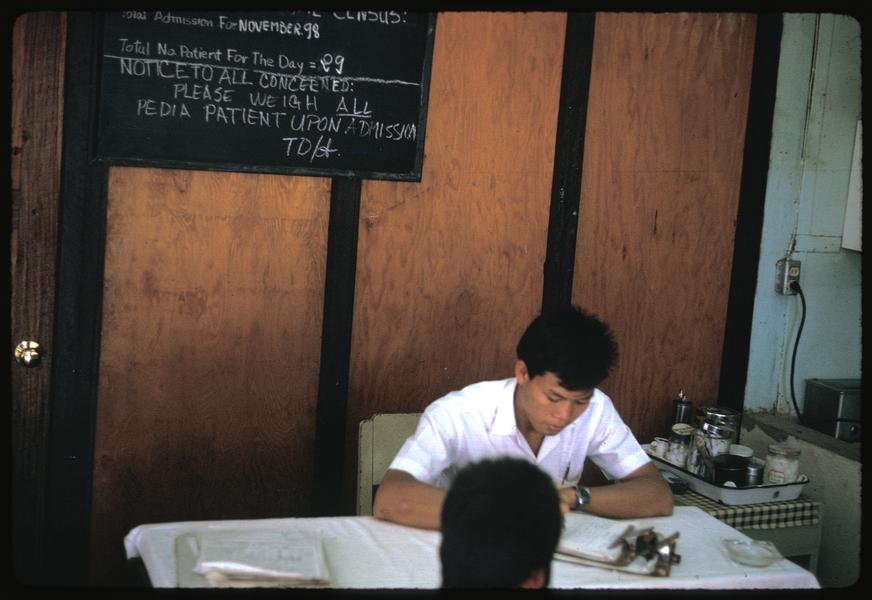 CENSUS:
Total Admission For NOVEMBER.98
Total No Patient For The Day = 29
NOTICE TO ALL CONCEENED:
PLEASE WEIGH ALL
PEDIA PATIENT UPON ADMISSION